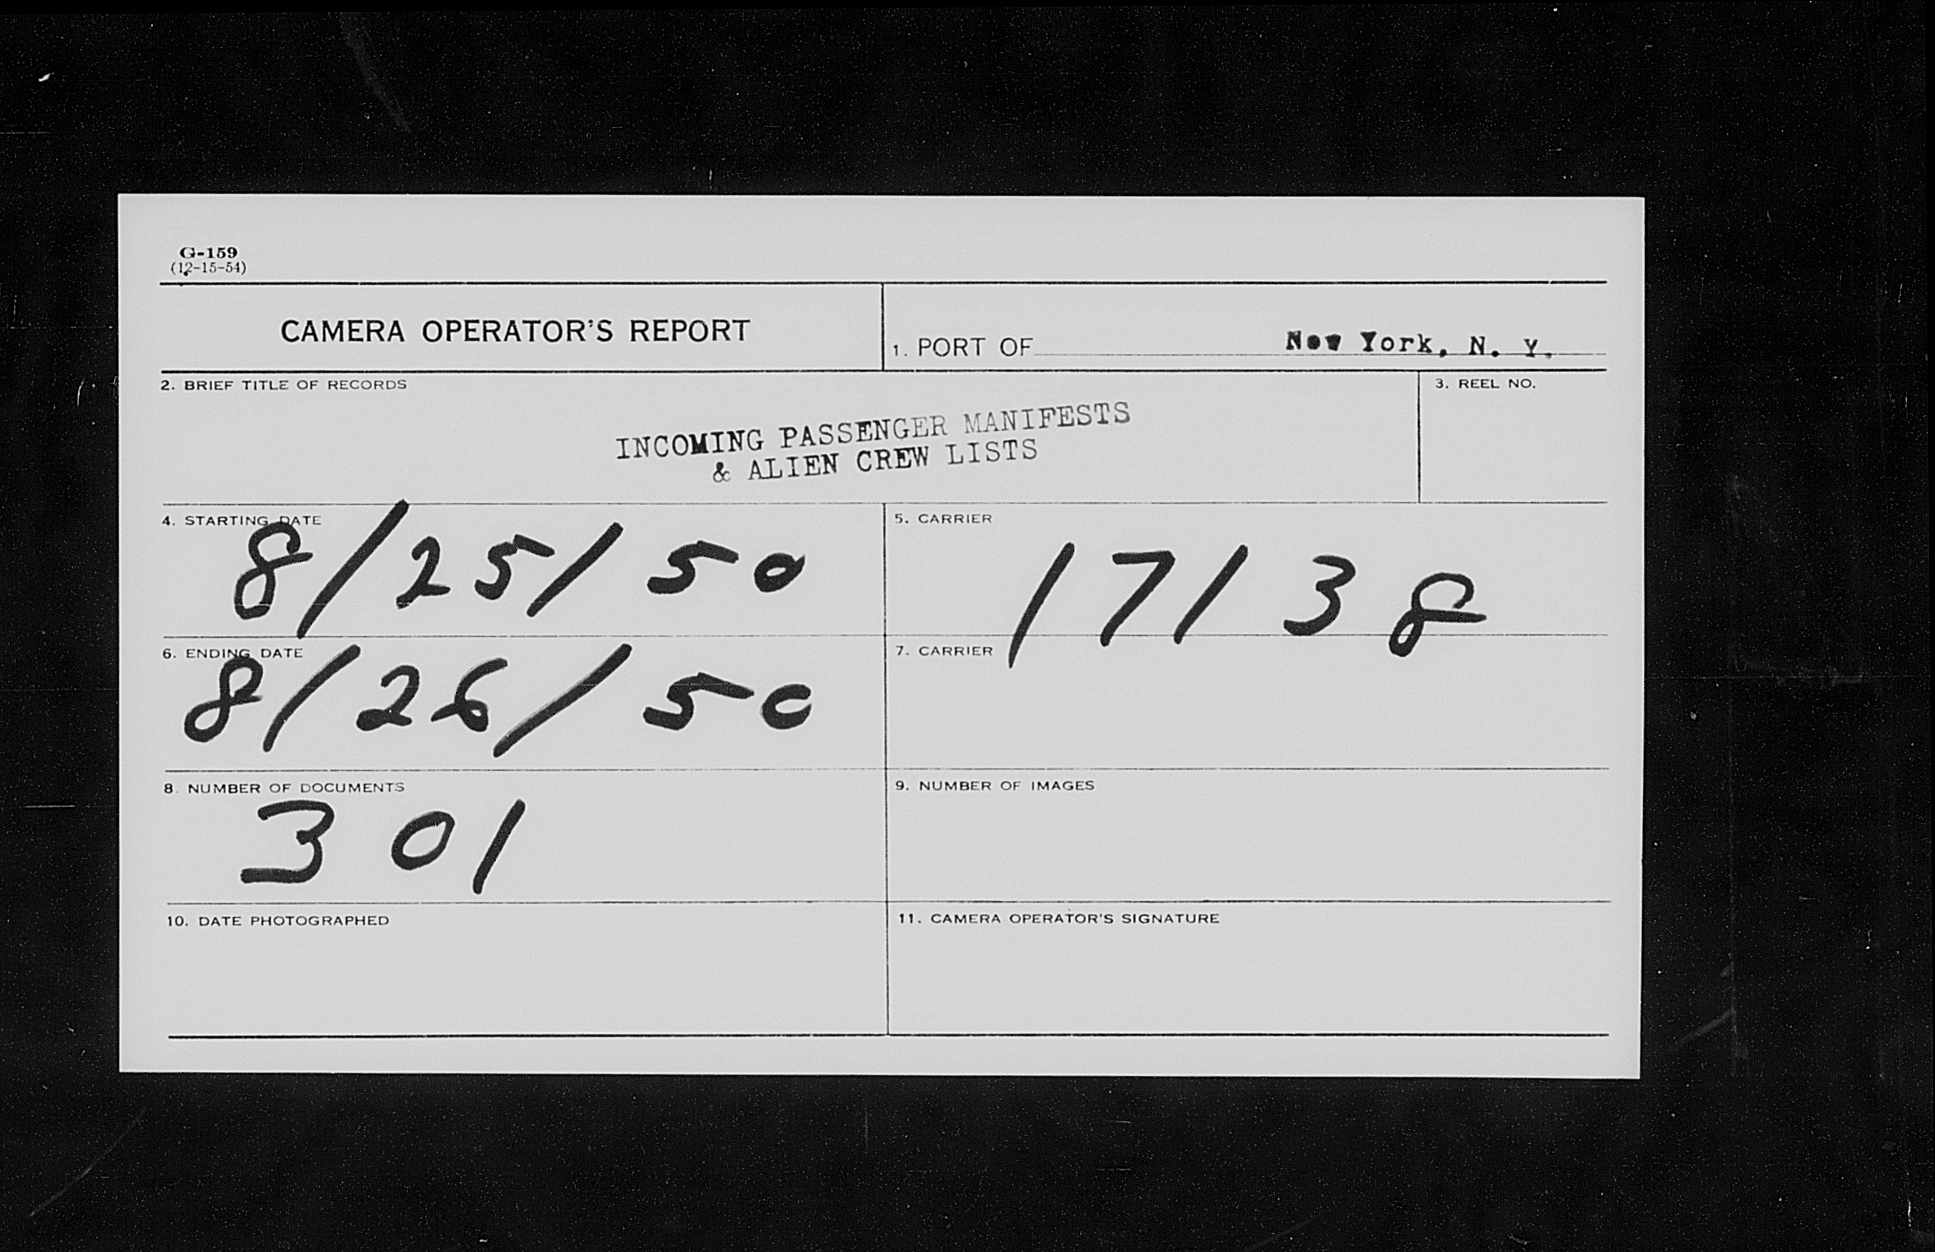 G-159
(12-15-54)
CAMERA OPERATOR'S REPORT
1. PORT OF New York, N. Y.
2. BRIEF TITLE OF RECORDS
INCOMING PASSENGER MANIFESTS
& ALIEN CREW LISTS
3. REEL NO.
4. STARTING DATE
8/25/50
5. CARRIER
17138
6. ENDING DATE
8/26/50
7. CARRIER
8. NUMBER OF DOCUMENTS
301
9. NUMBER OF IMAGES
10. DATE PHOTOGRAPHED
11. CAMERA OPERATOR'S SIGNATURE